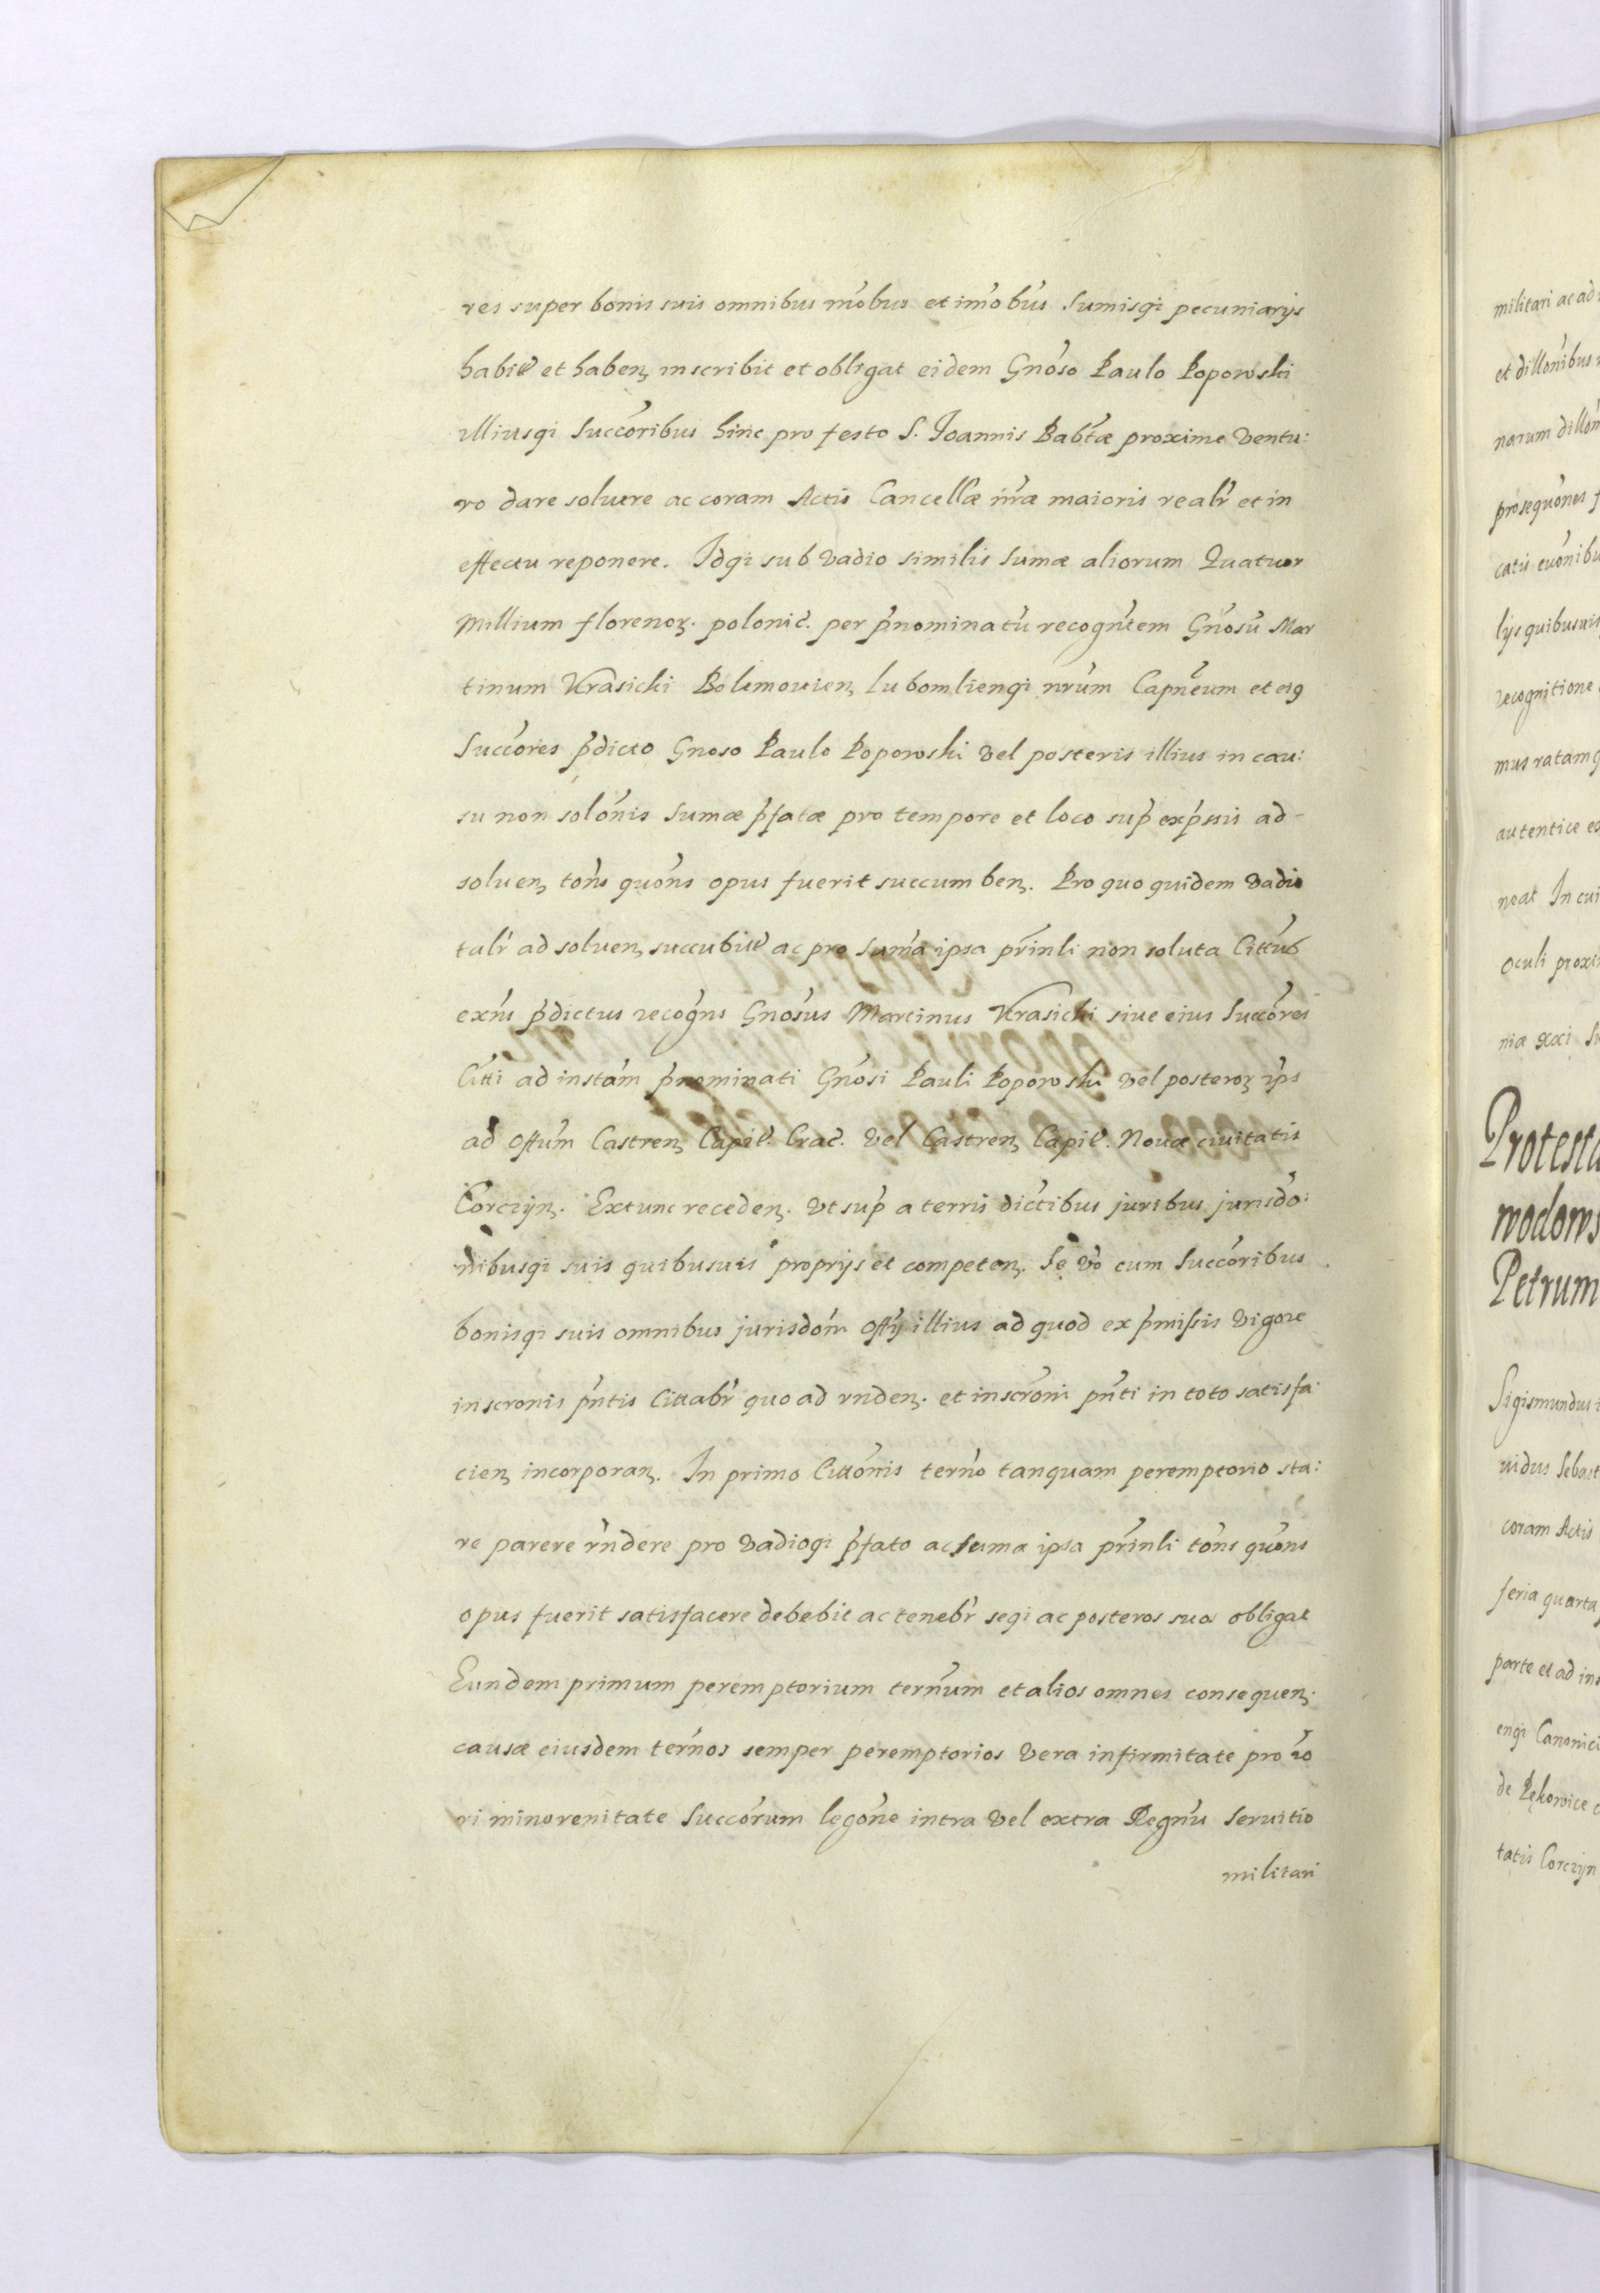 res super bonis suis omnibus mobus et imobus Sumisqi pecuniarijs
habit et haben inscribit et obligat eidem Gnoso Paulo Poporoski
illiusqi Succoribus hinc pro festo S. Joannis Babtæ proxime ventu:
ro dare soluere ac coram Actis Cancellæ nræ maioris realr et in
effectu reponere. Idqi sub vadio similis sumæ aliorum Quatuor
Millium florenoꝝ. polonic. per pnominatu recognitem Gnosu Mar
tinum Krasicki Bolimouien, lubomliengi nrum Capneum et eiꝰ
Succores pdicto Gnoso Paulo Poporoski vel posteris illius in cau:
su non solonis sumæ pfatæ pro tempore et loco sup expssis ad-
soluen, tons quons opus fuerit succumben. Pro quo quidem vadio
talr ad soluen, succubit ac pro suma ipsa prinli non soluta Cittus
exns pdictus recogns Gnosus Martinus Krasicki siue eius Succores
Citti ad instam pnominati Gnosi Pauli Poporoski vel posteroꝝ ips
ad offum Castren, Capit. Crac. vel Castren, Capit. Nouæ ciuitatis
Corczyn. Extunc receden. vt sup a terris dictibus juribus jurisdo:
nibusqi suis quibusuis proprijs et competen. Se vo cum Succoribus
bonisqi suis omnibus jurisdoni offij illius ad quod ex pmissis vigore
inscronis pntis Cittabr quo ad rnden. et inscroni pnti in toto satisfa:
cien, incorporan. In primo Cittonis terno tanquam peremptorio sta:
re parere rndere pro vadioqi pfato ac suma ipsa prinli tons quons
opus fuerit satisfacere debebit ac tenebr seqi ac posteros suos obligat
Eundem primum peremptorium ternum et alios omnes consequen.
causæ eiusdem ternos semper peremptorios vera infirmitate pro
ri minorenitate Succorum legone intra vel extra Regnu Seruitio
militari
militari ac ad
et dillonibus
narum dillon
prosequones
catis euonibu
lijs quibusuis
recognitione
mus ratam
autentice
neat In cui
Oculi proxi
niæ
Protesta
wodows
Petrum
Sigismundus
uidus Sebast
coram Actis
feria quarta
parte et ad ins
engi Canonici
de Pękowice
tatis Corczyn